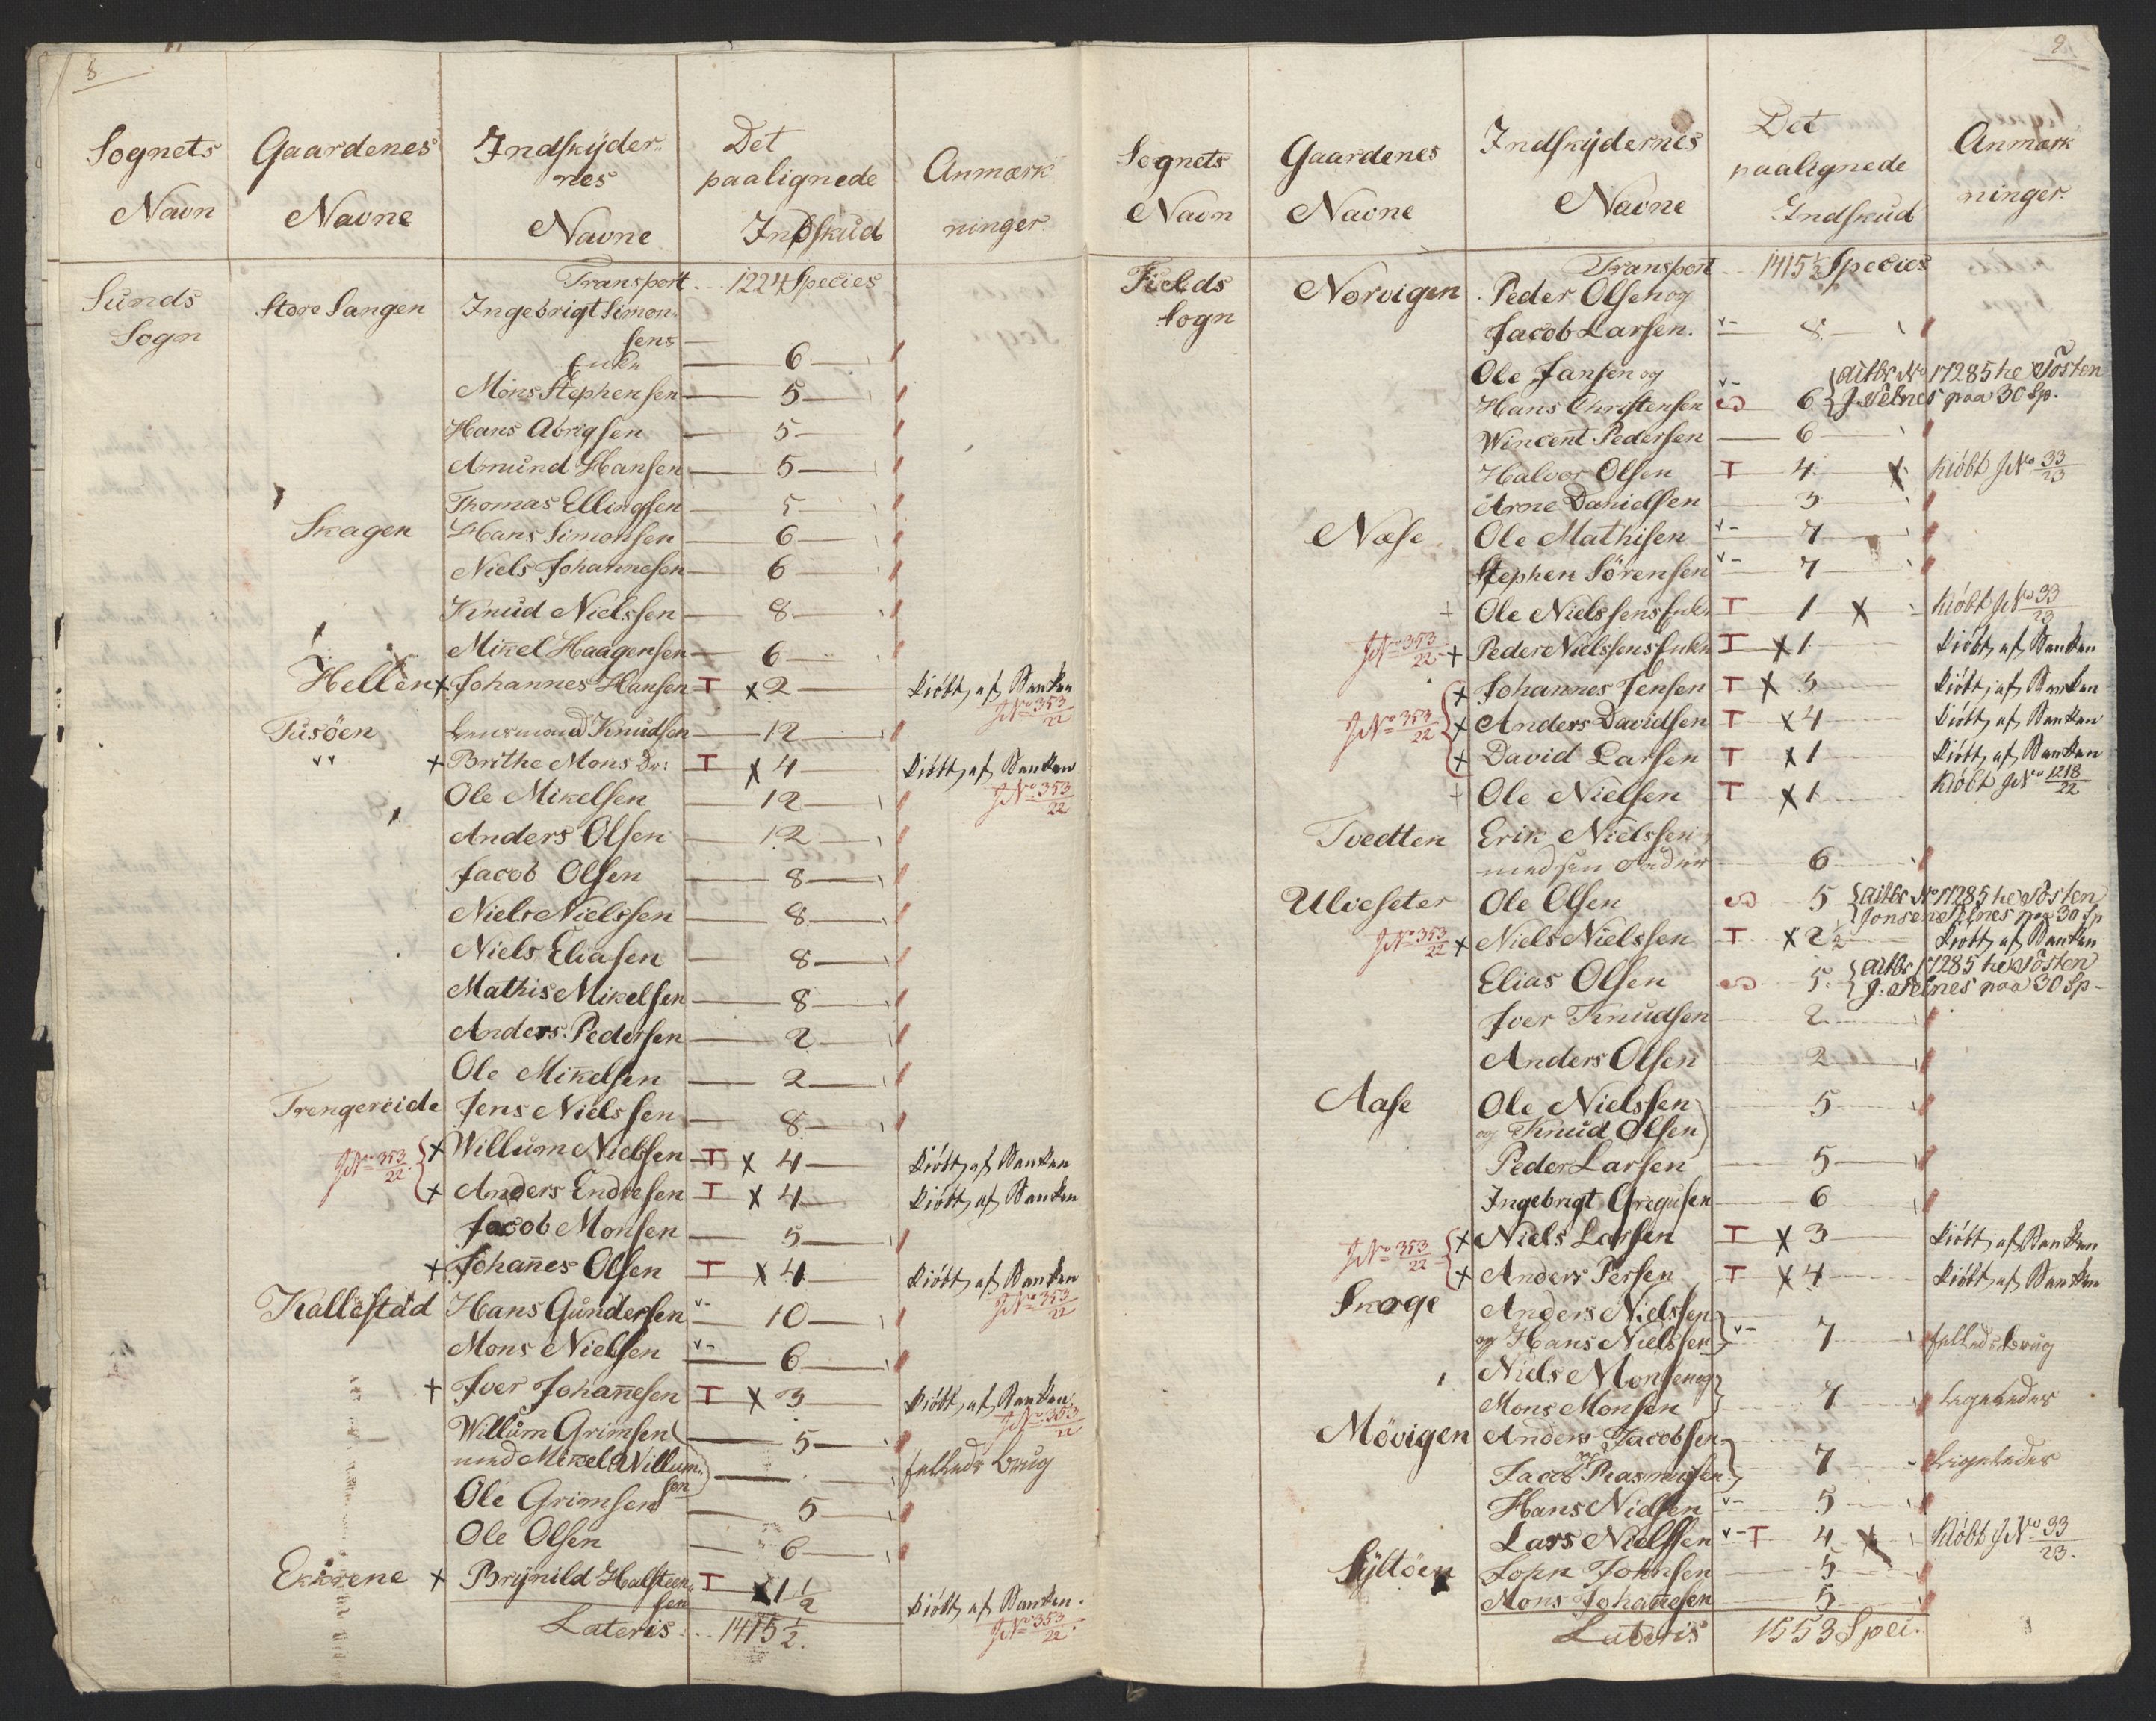 8
Sognets Navn | Gaardenes Navne | Indskÿder- nes Navne | Det paalignede Indskud | Anmærk ninger
Transport .. 1224 Species
Sunds Sogn | Store Sangen | Ingebrigt Simon-
sens
Enke — 6
Mons Stephensen — 5
Hans Abrigsen — 5
Amund Hansen — 5
Thomas Ellingsen — 5
Skagen | Hans Simonsen — 6
Niels Johannesen — 6
Knud Nielssen — 8
Mikel Haagensen — 6
Hellen | x Johannes Hansen | T x 2 | kiöbt af Banken
JNo 353/22
Tusöen | Lensmand Knudsen — 12
" | x Brithe Mons Dr: | T x 4 | kiöbt af Banken
JNo 353/22
Ole Mikelsen — 12
Anders Olsen — 12
Jacob Olsen — 8
Niels Nielssen — 8
Niels Eliasen — 8
Mathis Mikelsen — 8
Anders Pedersen — 2
Ole Mikelsen — 2
Trengereide | Jens Nielssen — 8
JNo 353/22 { x Willum Nielssen | T x 4 | kiöbt af Banken
x Anders Endresen | T x 4 | kiöbt af Banken
Jacob Monsen — 5
x Johañes Olsen | T x 4 | kiöbt af Banken
JNo 353/22
Kallestad | Hans Gundersen — 10
Mons Nielsen — 6
x Iver Johañesen | T x 3 | kiöbt af Banken
JNo 353/22
Willum Grimsen — 5
med Mikel Willum- | felleds Brug
sen
Ole Grimsen — 5
Ole Olsen — 6
Ekrene | x Brÿnild Halsteen- | T x 1 1/2 | kiöbt af Banken.
sen | JNo 353/22
Lateris .. 1415 1/2.
9
Sognets Navn | Gaardenes Navne | Indskÿdernes Navne | Det paalignede Indskud | Anmærk ninger.
Transport .. 1415 1/2 Species
Fields Sogn | Norvigen | Peder Olsen og
Jacob Larsen. — 8
Ole Jansen og
Hans Christensen — 6 { No 17285
paa 30 Sp.
Wincent Pedersen — 6
Halvor Olsen | T 4 x | kiöbt JNo 33/23
Arne Danielsen — 3
Næse | Ole Mathisen — 7
Stephen Sörensen — 7
+ Ole Nielssens Enke | T 1 x | kiöbt JNo 33/23
JNo 353/22 x Peder Nielssens Enke | T x 1 | kiöbt af Banken
x Johannes Jensen | T x 3 | kiöbt af Banken
JNo 353/22 { x Anders Davidsen | T x 4 | kiöbt af Banken
x David Larsen | T x 1 | kiöbt af Banken
+ Ole Nielsen | T x 1 | kiöbt JNo 1218/22
Tvedten | Erik Nielssen
med sin Fader — 6
Ulveseter | Ole Olsen — 5 { No 17285
paa 30 Sp
JNo 353/22 x Niels Nielssen | T x 2 1/2 | kiöbt af Banken
Elias Olsen — 5 { 17285
paa 30 Sp
Iver Knudsen — 2
Anders Olsen — 2
Aase | Ole Nielssen — 5
og Knud Olsen
Peder Larsen — 5
Ingebrigt Gregusen — 6
JNo 353/22 { x Niels Larsen | T x 3 | kiöbt af Banken
x Anders Persen | T x 4 | kiöbt af Banken
Skoge | Anders Nielssen
og Hans Nielssen — 7 | felleds brug
Niels Monsen og
Mons Monsen — 7 | ligeledes
Mövigen | Anders Jacobsen
og
Jacob Rasmussen — 7 | Ligeledes
Hans Nielsen — 5
Lars Nielssen | T 4 x | kiöbt JNo 33/23.
Syltöen | John Johnsen — 5
Mons Johañesen — 5
Lateris 1553 Spei.